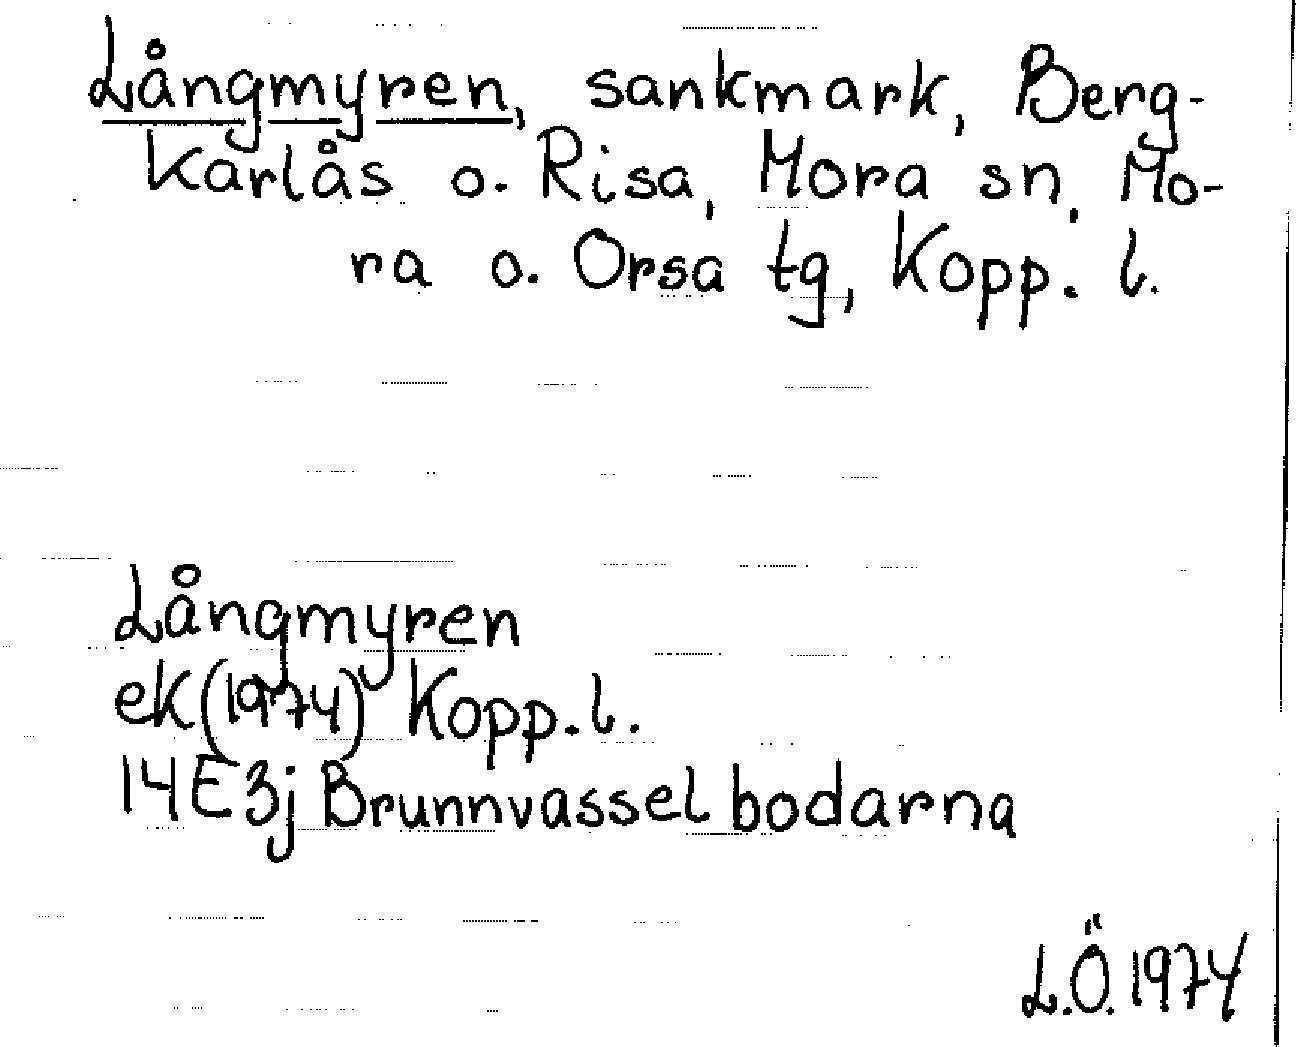 Långmyren, sankmark, Berg-
karlås o. Risa, Mora sn, Mo-
ra o. Orsa tg, Kopp. l.
Långmyren
ek (1974) Kopp. l.
14E3j Brunnvasselbodarna
L.Ö. 1974